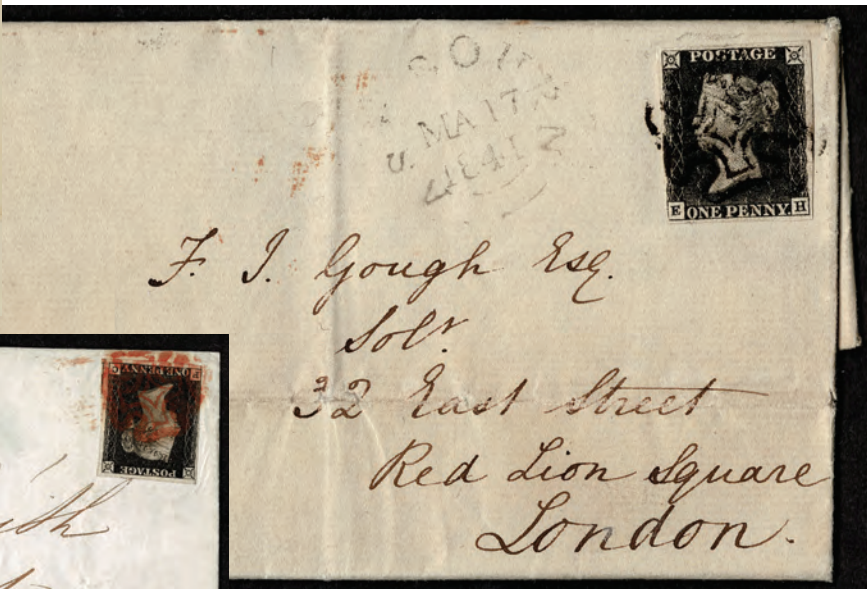 POSTAGE
MA 17
1841
E ONE PENNY. H
F. J. Gough Esq.
Solr.
32 East Street
Red Lion Square
London.
ONE PENNY
POSTAGE